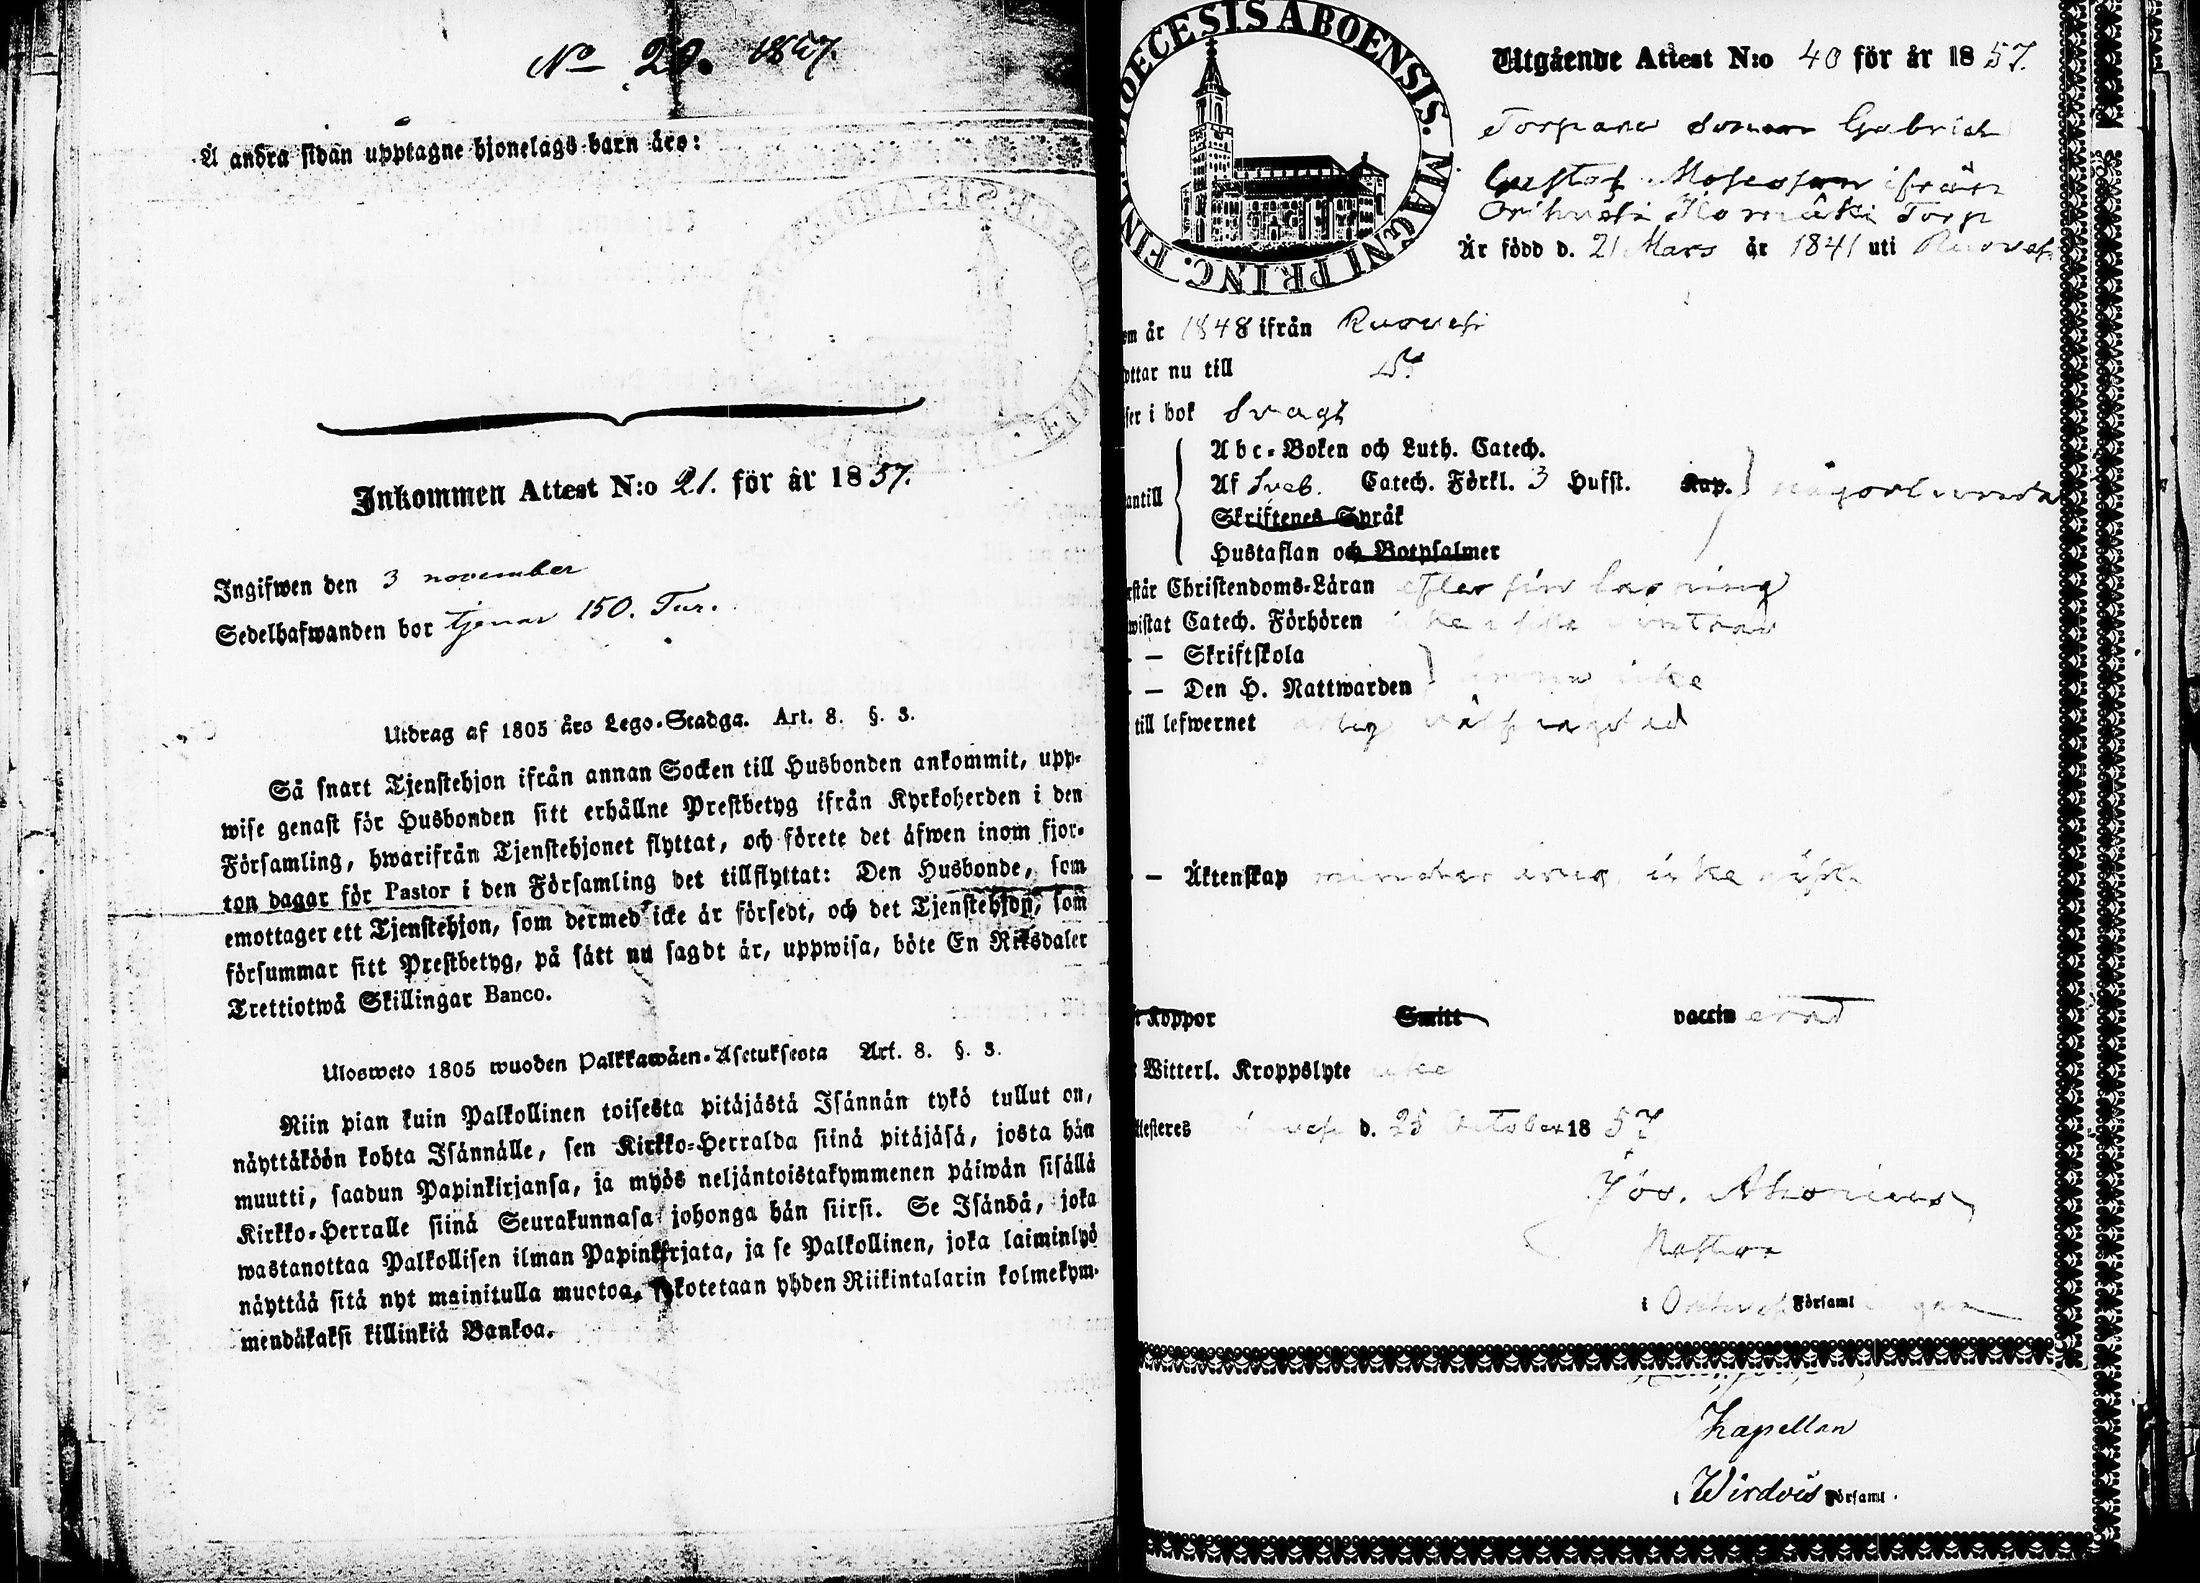 No 20. 1857.
Å andra sidan upptagne hjonelags barn äro:
Inkommen Attest N:o 21. för år 1857.
Ingifwen den 3 november
Sedelhafwanden bor tjenar 150. Tur.
Utdrag af 1805 års Lego-Stadga. Art. 8. §. 3.
Så snart Tjenstehjon ifrån annan Socken till Husbonden ankommit, upp-
wise genast för Husbonden sitt erhållne Prestbetyg ifrån Kyrkoherden i den
Församling, hwarifrån Tjenstehjonet flyttat, och förete det äfwen inom fjor-
ton dagar för Pastor i den Församling det tillflyttat: Den Husbonde, som
emottager ett Tjenstehjon, som dermed icke är försedt, och det Tjenstehjon, som
försummar sitt Prestbetyg, på sätt nu sagdt är, uppwisa, böte En Riksdaler
Trettiotwå Skillingar Banco.
Ulosweto 1805 wuoden Palkkawäen-Asetuksesta Art. 8. §. 3.
Niin pian kuin Palkollinen toisesta pitäjästä Isännän tykö tullut on,
näyttäköön kohta Isännälle, sen Kirkko-Herralda siinä pitäjäsä, josta hän
muutti, saadun Papinkirjansa, ja myös neljäntoistakymmenen päiwän sisällä
Kirkko-Herralle siinä Seurakunnasa johonga hän siirsi. Se Isändä, joka
wastanottaa Palkollisen ilman Papinkirjata, ja se Palkollinen, joka laiminlyö
näyttää sitä nyt mainitulla muotoa, sakotetaan yhden Riikintalarin kolmekym-
mendäkaksi killinkiä Bankoa.
DIOECESIS ABOENSIS. MAGNI PRINC. FINL.
Utgående Attest N:o 40 för år 1857.
Torpare sonen Gabriel
Gustaf Mosesson ifrån
Orihvesi Torp
Är född d. 21 Mars år 1841 uti Ruovesi
om år 1848 ifrån Ruovesi
yttar nu till
ser i bok Svagt
Abc-Boken och Luth. Catech.
antill Af Sveb. Catech. Förkl. 3 Hufst. Kap. någorlunda
Skriftenes Språk
Hustaflan och Botpsalmer
rstår Christendoms-Läran efter sin läsning
wistat Catech. Förhören
- — Skriftskola
- — Den H. Nattwarden ännu icke
till lefwernet
- — Äktenskap minder årig, icke
t Koppor Smitt vaccinerad
Witterl. Kroppslyte icke
ttesteres d. 25 October 1857
Pastor
i Orihvesi Församl
Kapellan
i Wirdois Församl.